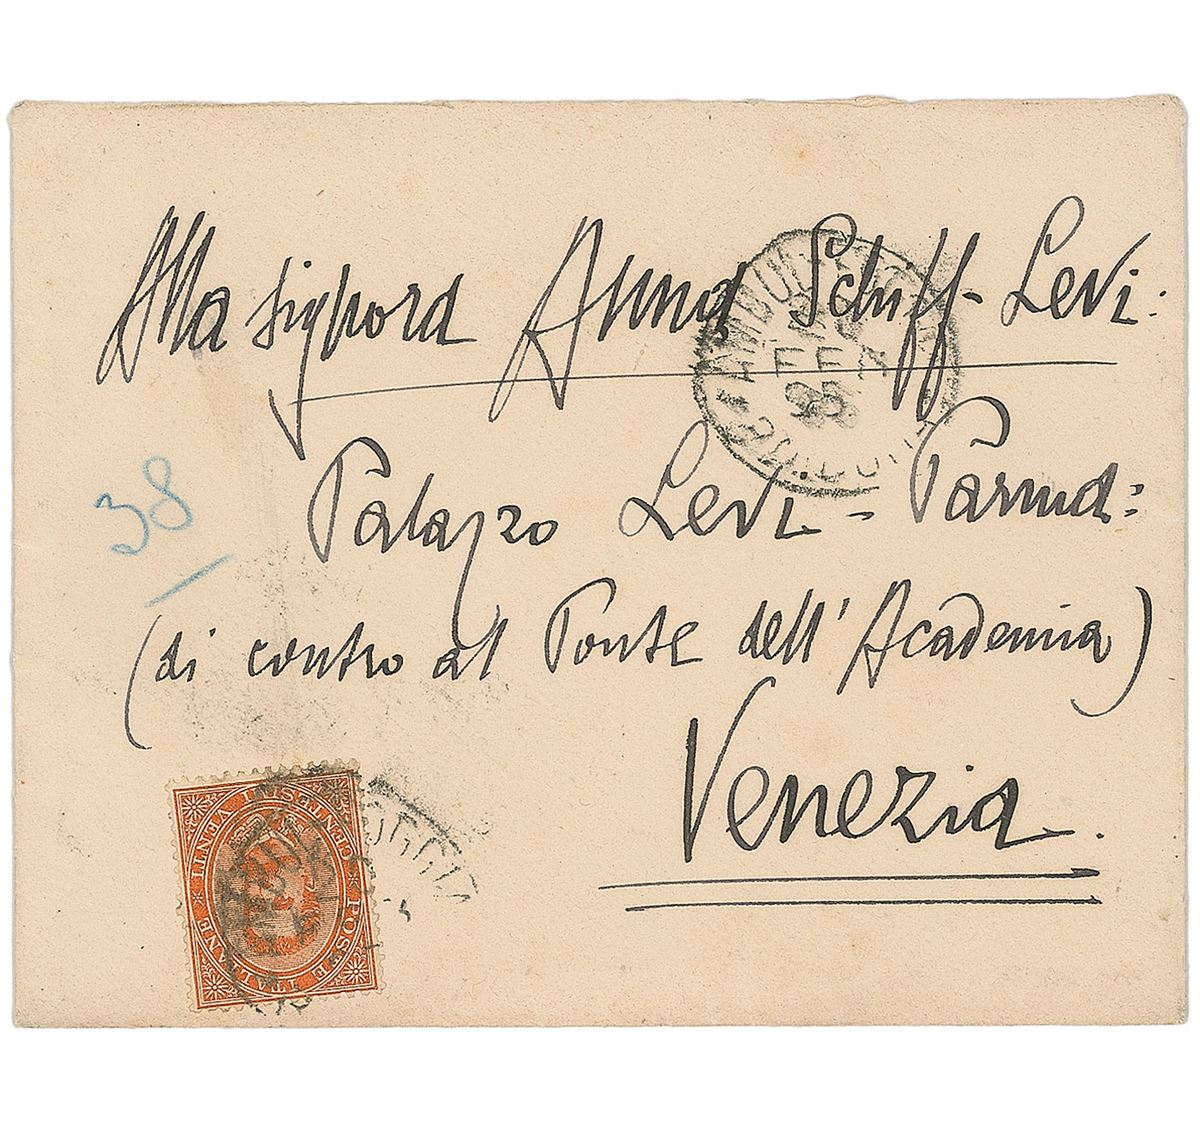 Alla Signora Anna Schiff-Levi:
Palazzo Levi - Parma:
38
(di contro al Ponte dell'Accademia)
Venezia.
AMBUL
FEB
95
POSTE ITALIANE * CENTESIMI VENTI *